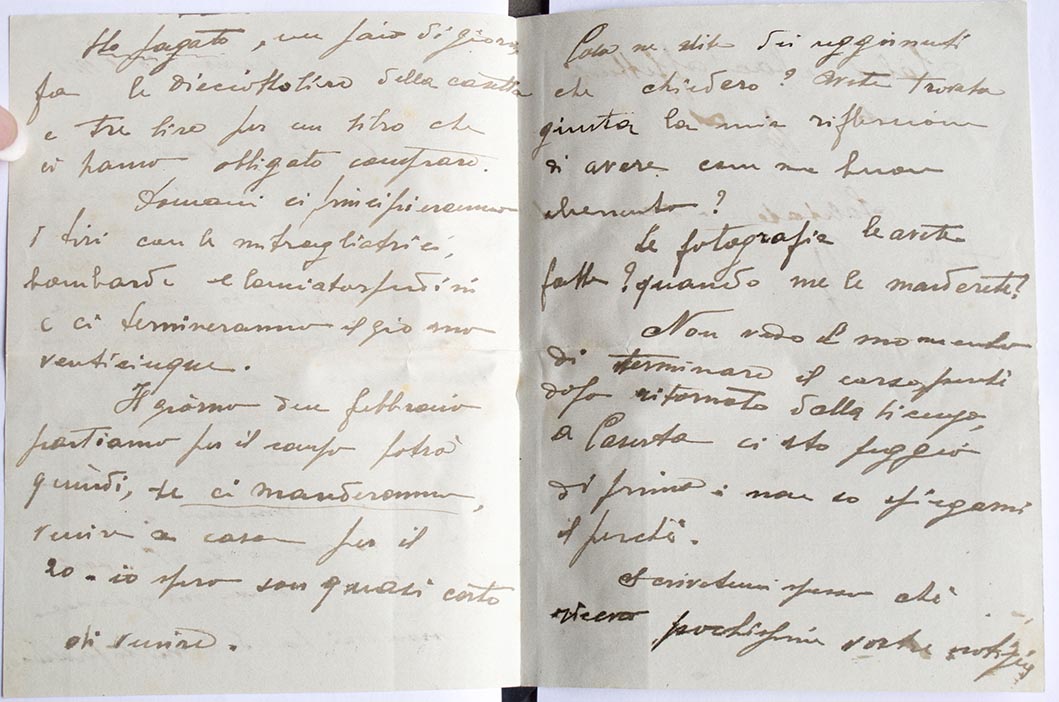 Ho pagato, un paio di giorni
fa le diciottolire della cassetta
e tre lire per un libro che
ci hanno obligato comprare.
Domani ci principieranno
i tiri con le mitragliatrici,
bombarde e lanciatorpedini
e ci termineranno il giorno
venticinque.
Il giorno due febbraio
partiamo per il campo potrò
quindi, se ci manderanno,
venire a casa per il
20 - io spero son quasi certo
di venire.
Cosa ne dite dei reggimenti
che chiederò? Avete trovata
giusta la mia riflessione
di avere con me buon
elemento?
Le fotografie le avete
fatte? quando me le manderete?
Non vedo il momento
di terminare il corso perchè
dopo ritornato dalla licenza,
a Caserta ci sto peggio
di prima e non so spiegarmi
il perchè.
Scrivetemi spesso chè
ricevo pochissime vostre notizie